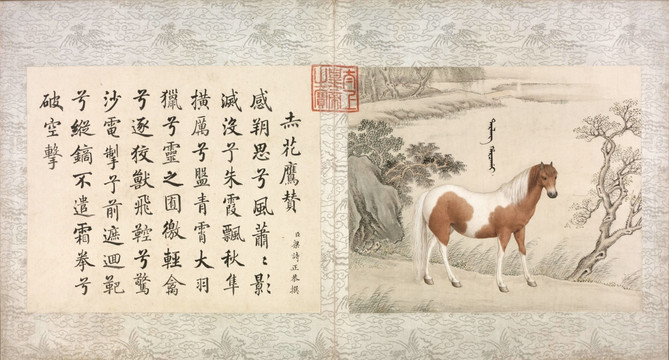 赤花鷹贊
臣梁詩正恭撰
感朔思兮風蕭〻影
滅沒兮朱霞飄秋隼
橫厲兮青霄大羽
獵兮靈之囿徼輕禽
兮逐狡獸飛鞚兮驚
沙電掣兮前遮迴靶
兮縱鏑不遣霜拳兮
破空擊
太上
皇帝
之寶